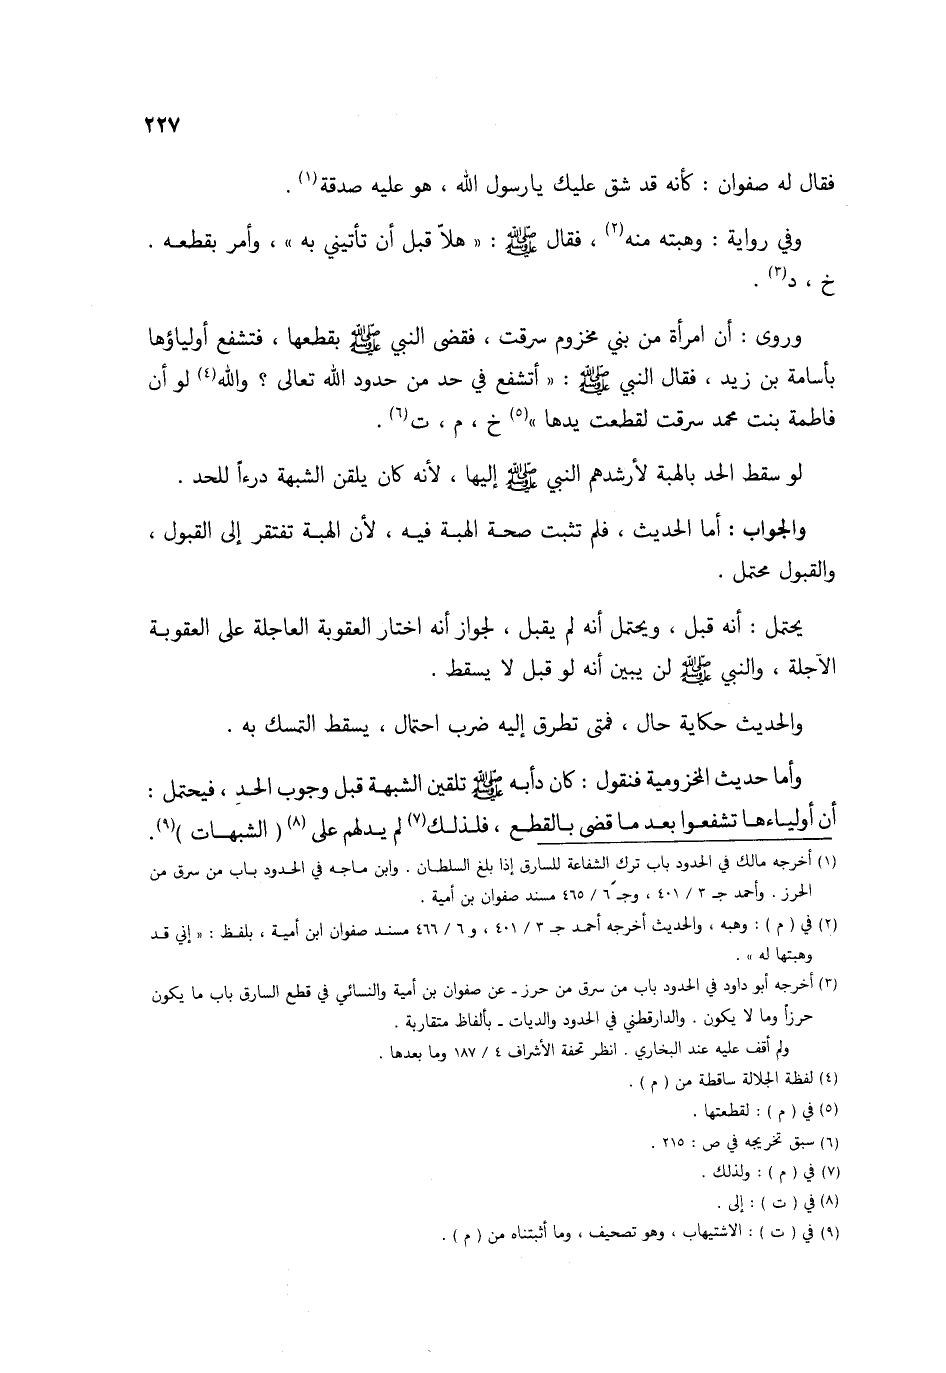 ٢٢٧
فقال له صفوان : كأنه قد شق عليك يارسول الله ، هو عليه صدقة(١) .
وفي رواية : وهبته منه(٢) ، فقال ﷺ : « هلاّ قبل أن تأتيني به » ، وأمر بقطعـه .
خ ، د(٣) .
وروى : أن امرأة من بني مخزوم سرقت ، فقضى النبي ﷺ بقطعها ، فتشفع أولياؤها
بأسامة بن زيد ، فقال النبي ﷺ : « أتشفع في حد من حدود الله تعالى ؟ والله(٤) لو أن
فاطمة بنت محمد سرقت لقطعت يدها »(٥) خ ، م ، ت(٦) .
لو سقط الحد بالهبة لأرشدهم النبي ﷺ إليها ، لأنه كان يلقن الشبهة درءاً للحد .
والجواب : أما الحديث ، فلم تثبت صحـة الهبـة فيـه ، لأن الهبـة تفتقر إلى القبول ،
والقبول محتمل .
يحتمل : أنه قبل ، ويحتمل أنه لم يقبل ، لجواز أنه اختار العقوبة العاجلة على العقوبـة
الآجلة ، والنبي ﷺ لن يبين أنه لو قبل لا يسقط .
والحديث حكاية حال ، فمتى تطرق إليه ضرب احتمال ، يسقط التمسك به .
وأما حديث المخزومية فنقول : كان دأبـه ﷺ تلقين الشبهـة قبل وجوب الحـد ، فيحتمل :
أن أوليـاءهـا تشفعـوا بعـد مـا قضى بـالقطـع ، فلـذلـك(٧) لم يـدلهم على(٨) ( الشبهـات )(٩).
(١) أخرجه مالك في الحدود باب ترك الشفاعة للسارق إذا بلغ السلطـان . وابن مـاجـه في الحـدود بـاب من سرق من
الحرز . وأحمد جـ ٣ / ٤٠١ ، وجـ ٦ / ٤٦٥ مسند صفوان بن أمية .
(٢) في ( م ) : وهبه ، والحديث أخرجه أحمـد جـ ٣ / ٤٠١ ، و ٦ / ٤٦٦ مسنـد صفوان ابن أميـة ، بلفـظ : « إني قـد
وهبتها له » .
(٣) أخرجه أبو داود في الحدود باب من سرق من حرز ـ عن صفوان بن أمية والنسائي في قطع السارق باب ما يكون
حرزاً وما لا يكون . والدارقطني في الحدود والديات ـ بألفاظ متقاربة .
ولم أقف عليه عند البخاري . انظر تحفة الأشراف ٤ / ١٨٧ وما بعدها .
(٤) لفظة الجلالة ساقطة من ( م ) .
(٥) في ( م ) : لقطعتها .
(٦) سبق تخريجه في ص : ٢١٥ .
(٧) في ( م ) : ولذلك .
(٨) في ( ت ) : إلى .
(٩) في ( ت ) : الاشتيهاب ، وهو تصحيف ، وما أثبتناه من ( م ) .